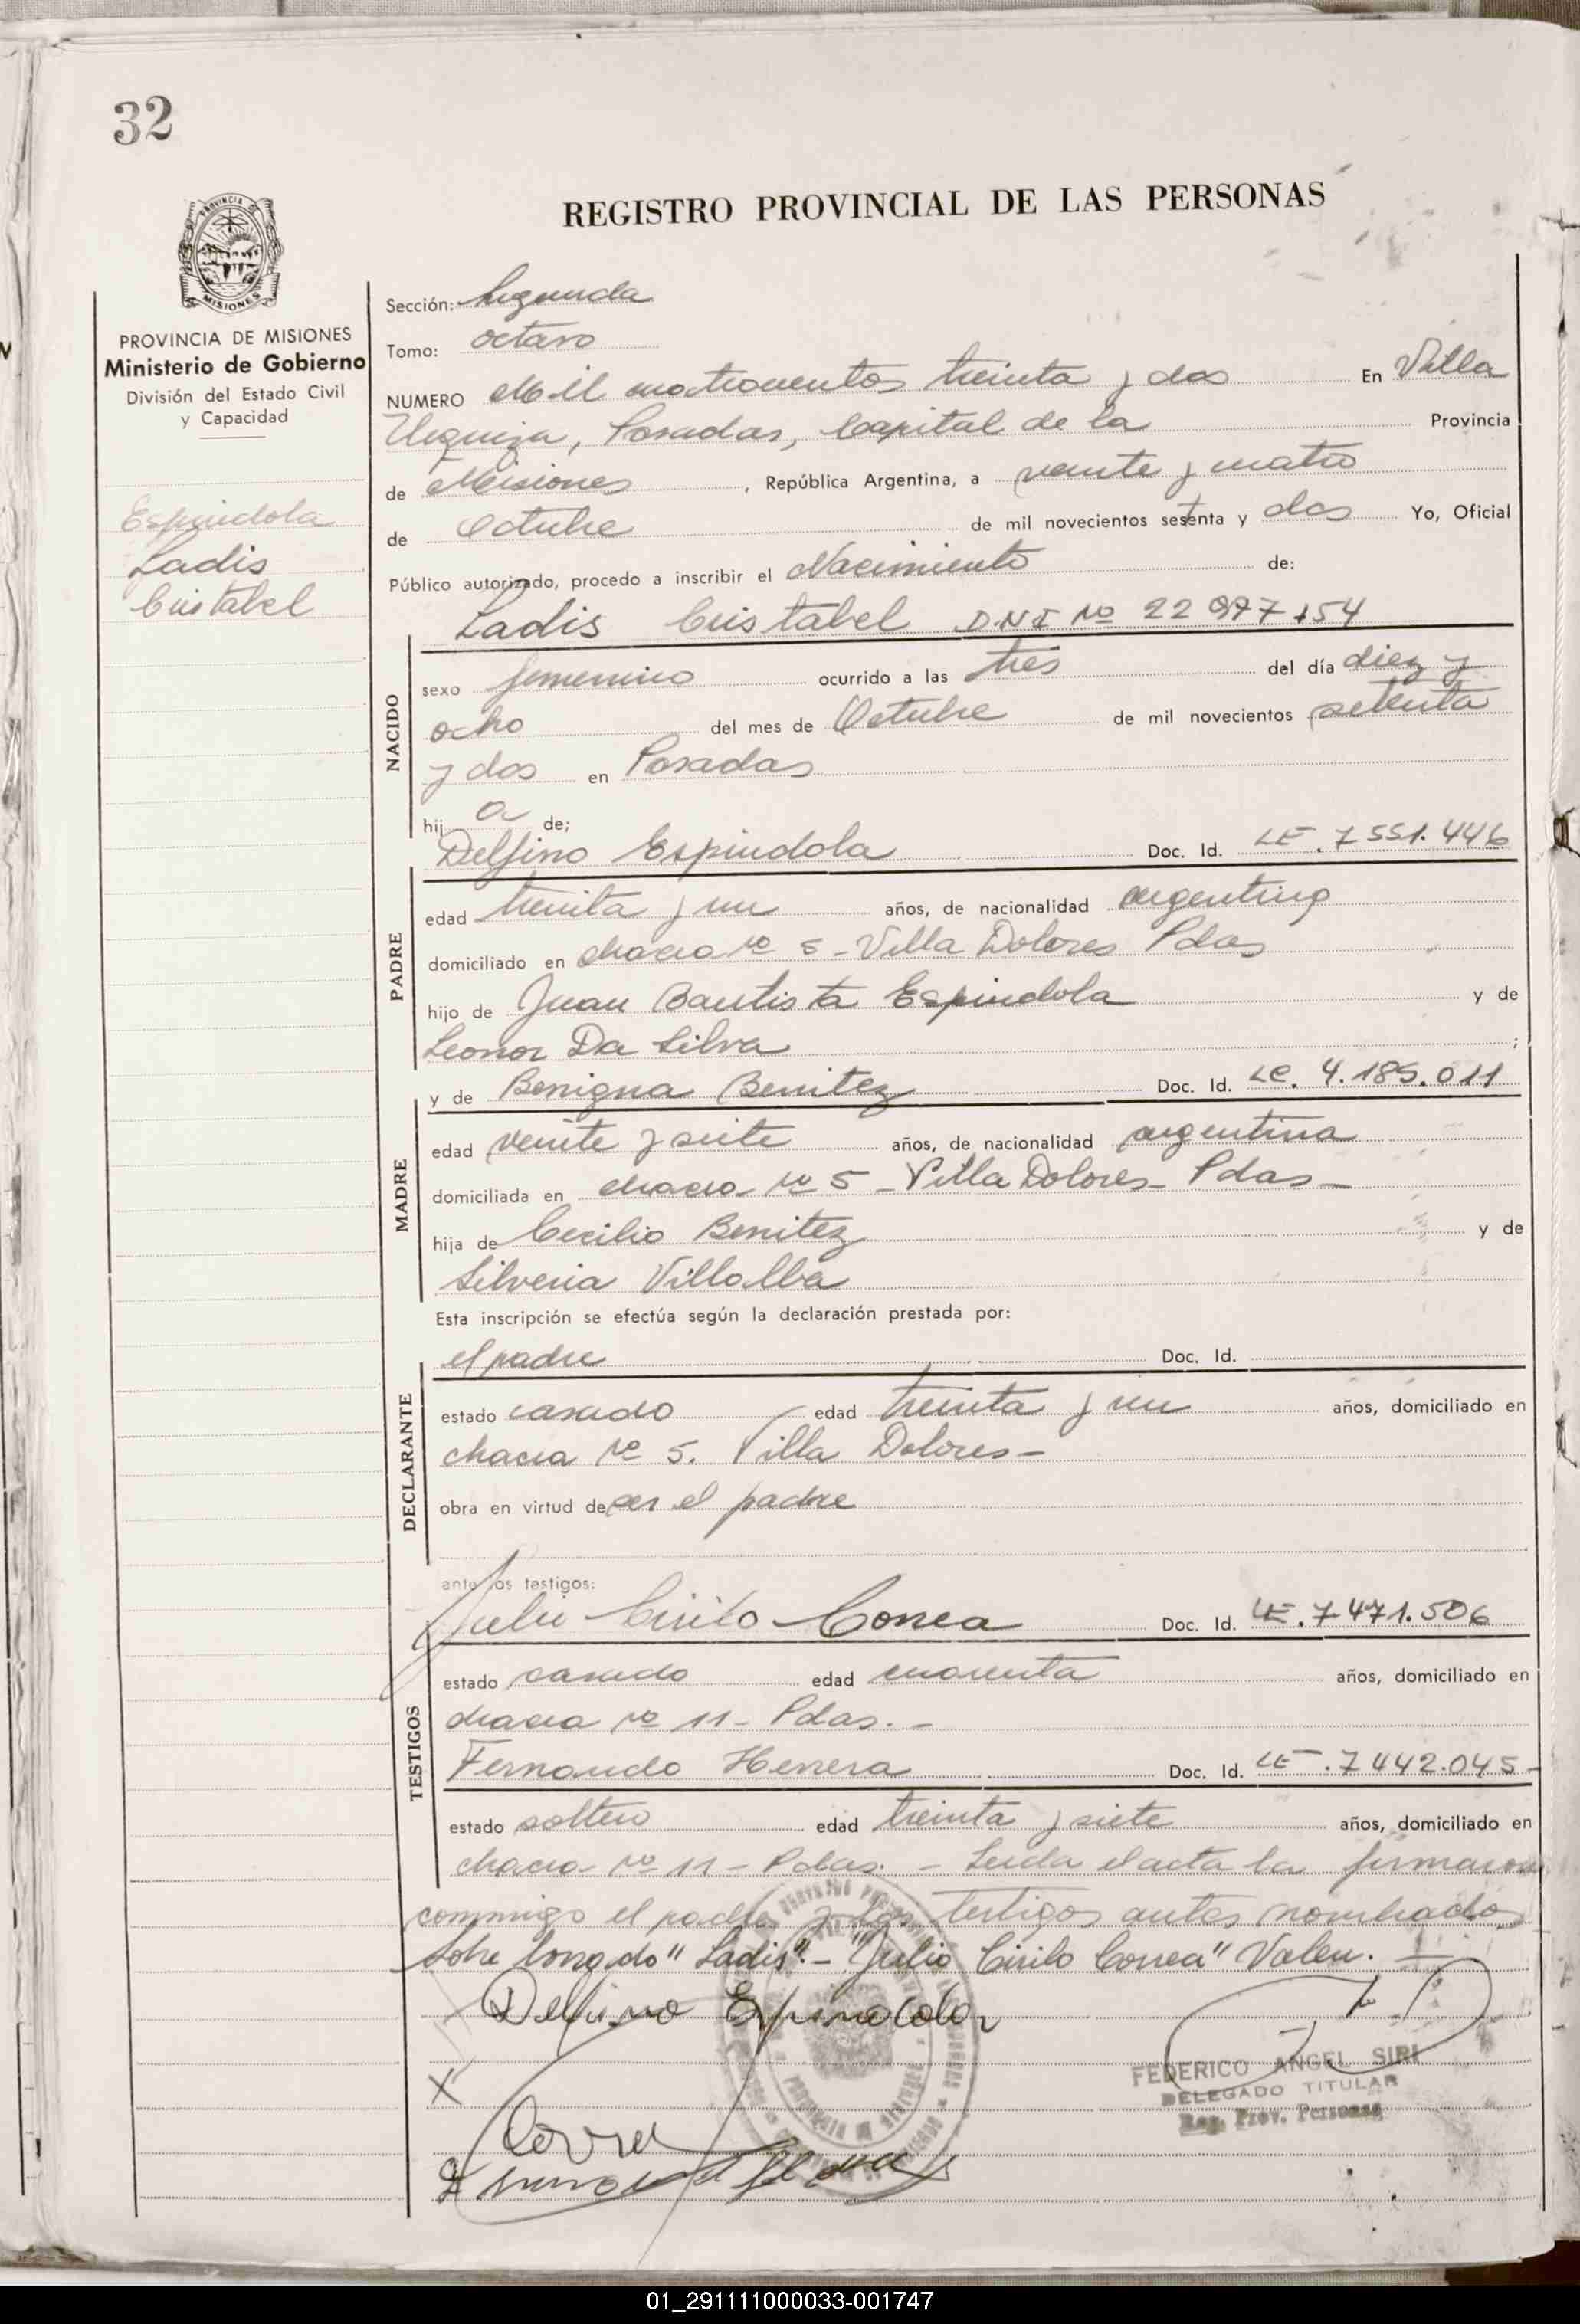 32
REGISTRO PROVINCIAL DE LAS PERSONAS
PROVINCIA DE
MISIONES
PROVINCIA DE MISIONES
Ministerio de Gobierno
División del Estado Civil
y Capacidad
Espindola
Ladis
Cristabel
Sección: Segunda
Tomo: octavo
NUMERO Mil cuatrocientos treinta y dos En Villa
Urquiza, Posadas, Capital de la Provincia
de Misiones, República Argentina, a veinte y cuatro
de Octubre de mil novecientos setenta y dos Yo, Oficial
Público autorizado, procedo a inscribir el Nacimiento de:
Ladis Cristabel D.N.I Nº 22 997 154
NACIDO
sexo femenino ocurrido a las tres del día diez y
ocho del mes de Octubre de mil novecientos setenta
y dos en Posadas
hij a de;
Delfino Espindola Doc. Id. LE. 7551.446
PADRE
edad treinta y un años, de nacionalidad argentino
domiciliado en chacra nº 5 - Villa Dolores Pdas
hijo de Juan Bautista Espindola y de
Leonor Da Silva ;
y de Benigna Benitez Doc. Id. LC. 4.189.011
MADRE
edad veinte y siete años, de nacionalidad argentina
domiciliada en chacra nº 5 - Villa Dolores - Pdas -
hija de Cecilio Benitez y de
Silveria Villalba
Esta inscripción se efectúa según la declaración prestada por:
el padre Doc. Id.
DECLARANTE
estado casado edad treinta y un años, domiciliado en
chacra nº 5. Villa Dolores -
obra en virtud de ser el padre
ante los testigos:
Julio Cirilo Correa Doc. Id. LE. 7471.506
TESTIGOS
estado casado edad cuarenta años, domiciliado en
chacra nº 11 - Pdas. -
Fernando Herrera Doc. Id. LE. 7442.045 -
estado soltero edad treinta y siete años, domiciliado en
chacra nº 11 - Pdas. - Leida el acta la firmaron
conmigo el padre y los testigos antes nombrados
Sobre "Ladis". - "Julio Cirilo Correa" Valen. -
Delfino Espindola
X
Correa
FEDERICO ANGEL SIRI
DELEGADO TITULAR
Reg. Prov. Personas
01_291111000033-001747